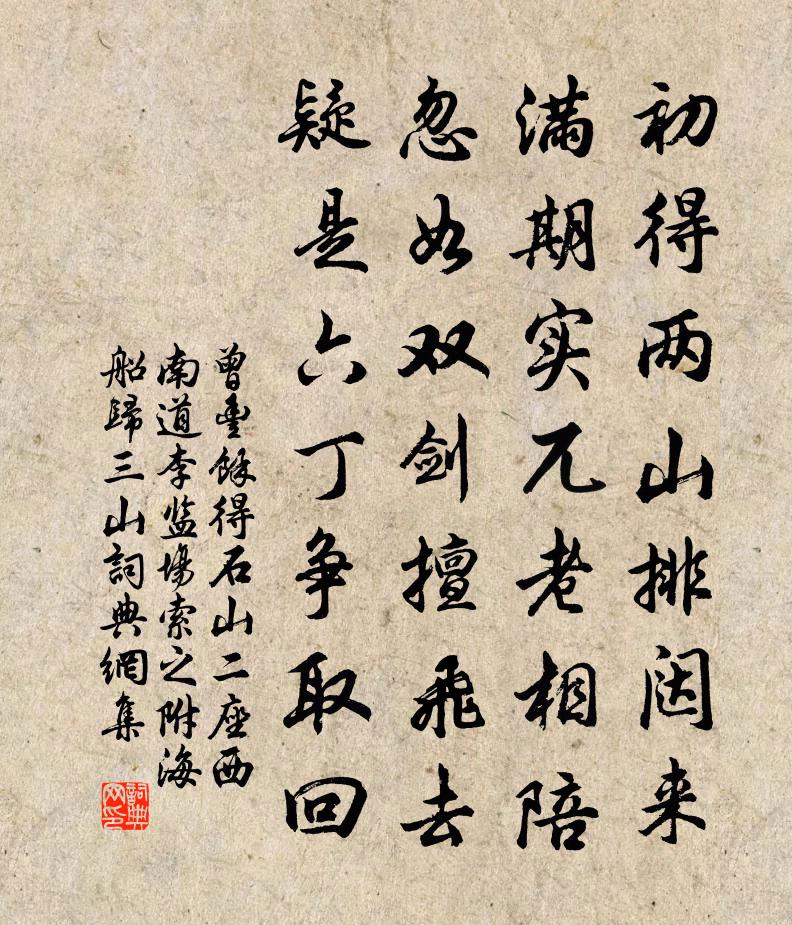 初得两山排闼来
满期实兀老相陪
忽如双剑擅飞去
疑是六丁争取回
曾豊餘得石山二座西
南道李监場索之附海
船歸三山詞典網集
詞典网印